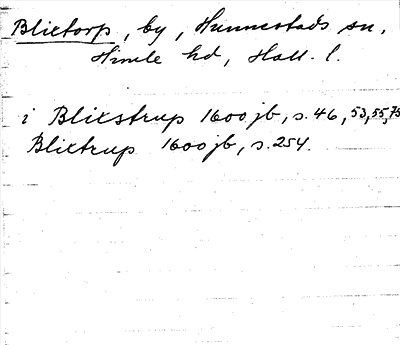 Blixtorp, by, Hunnestads sn,
Himle hd, Hall. l.
i Blixstrup 1600 jb, s. 46, 53, 55, 75
Blixtrup 1600 jb, s. 254.